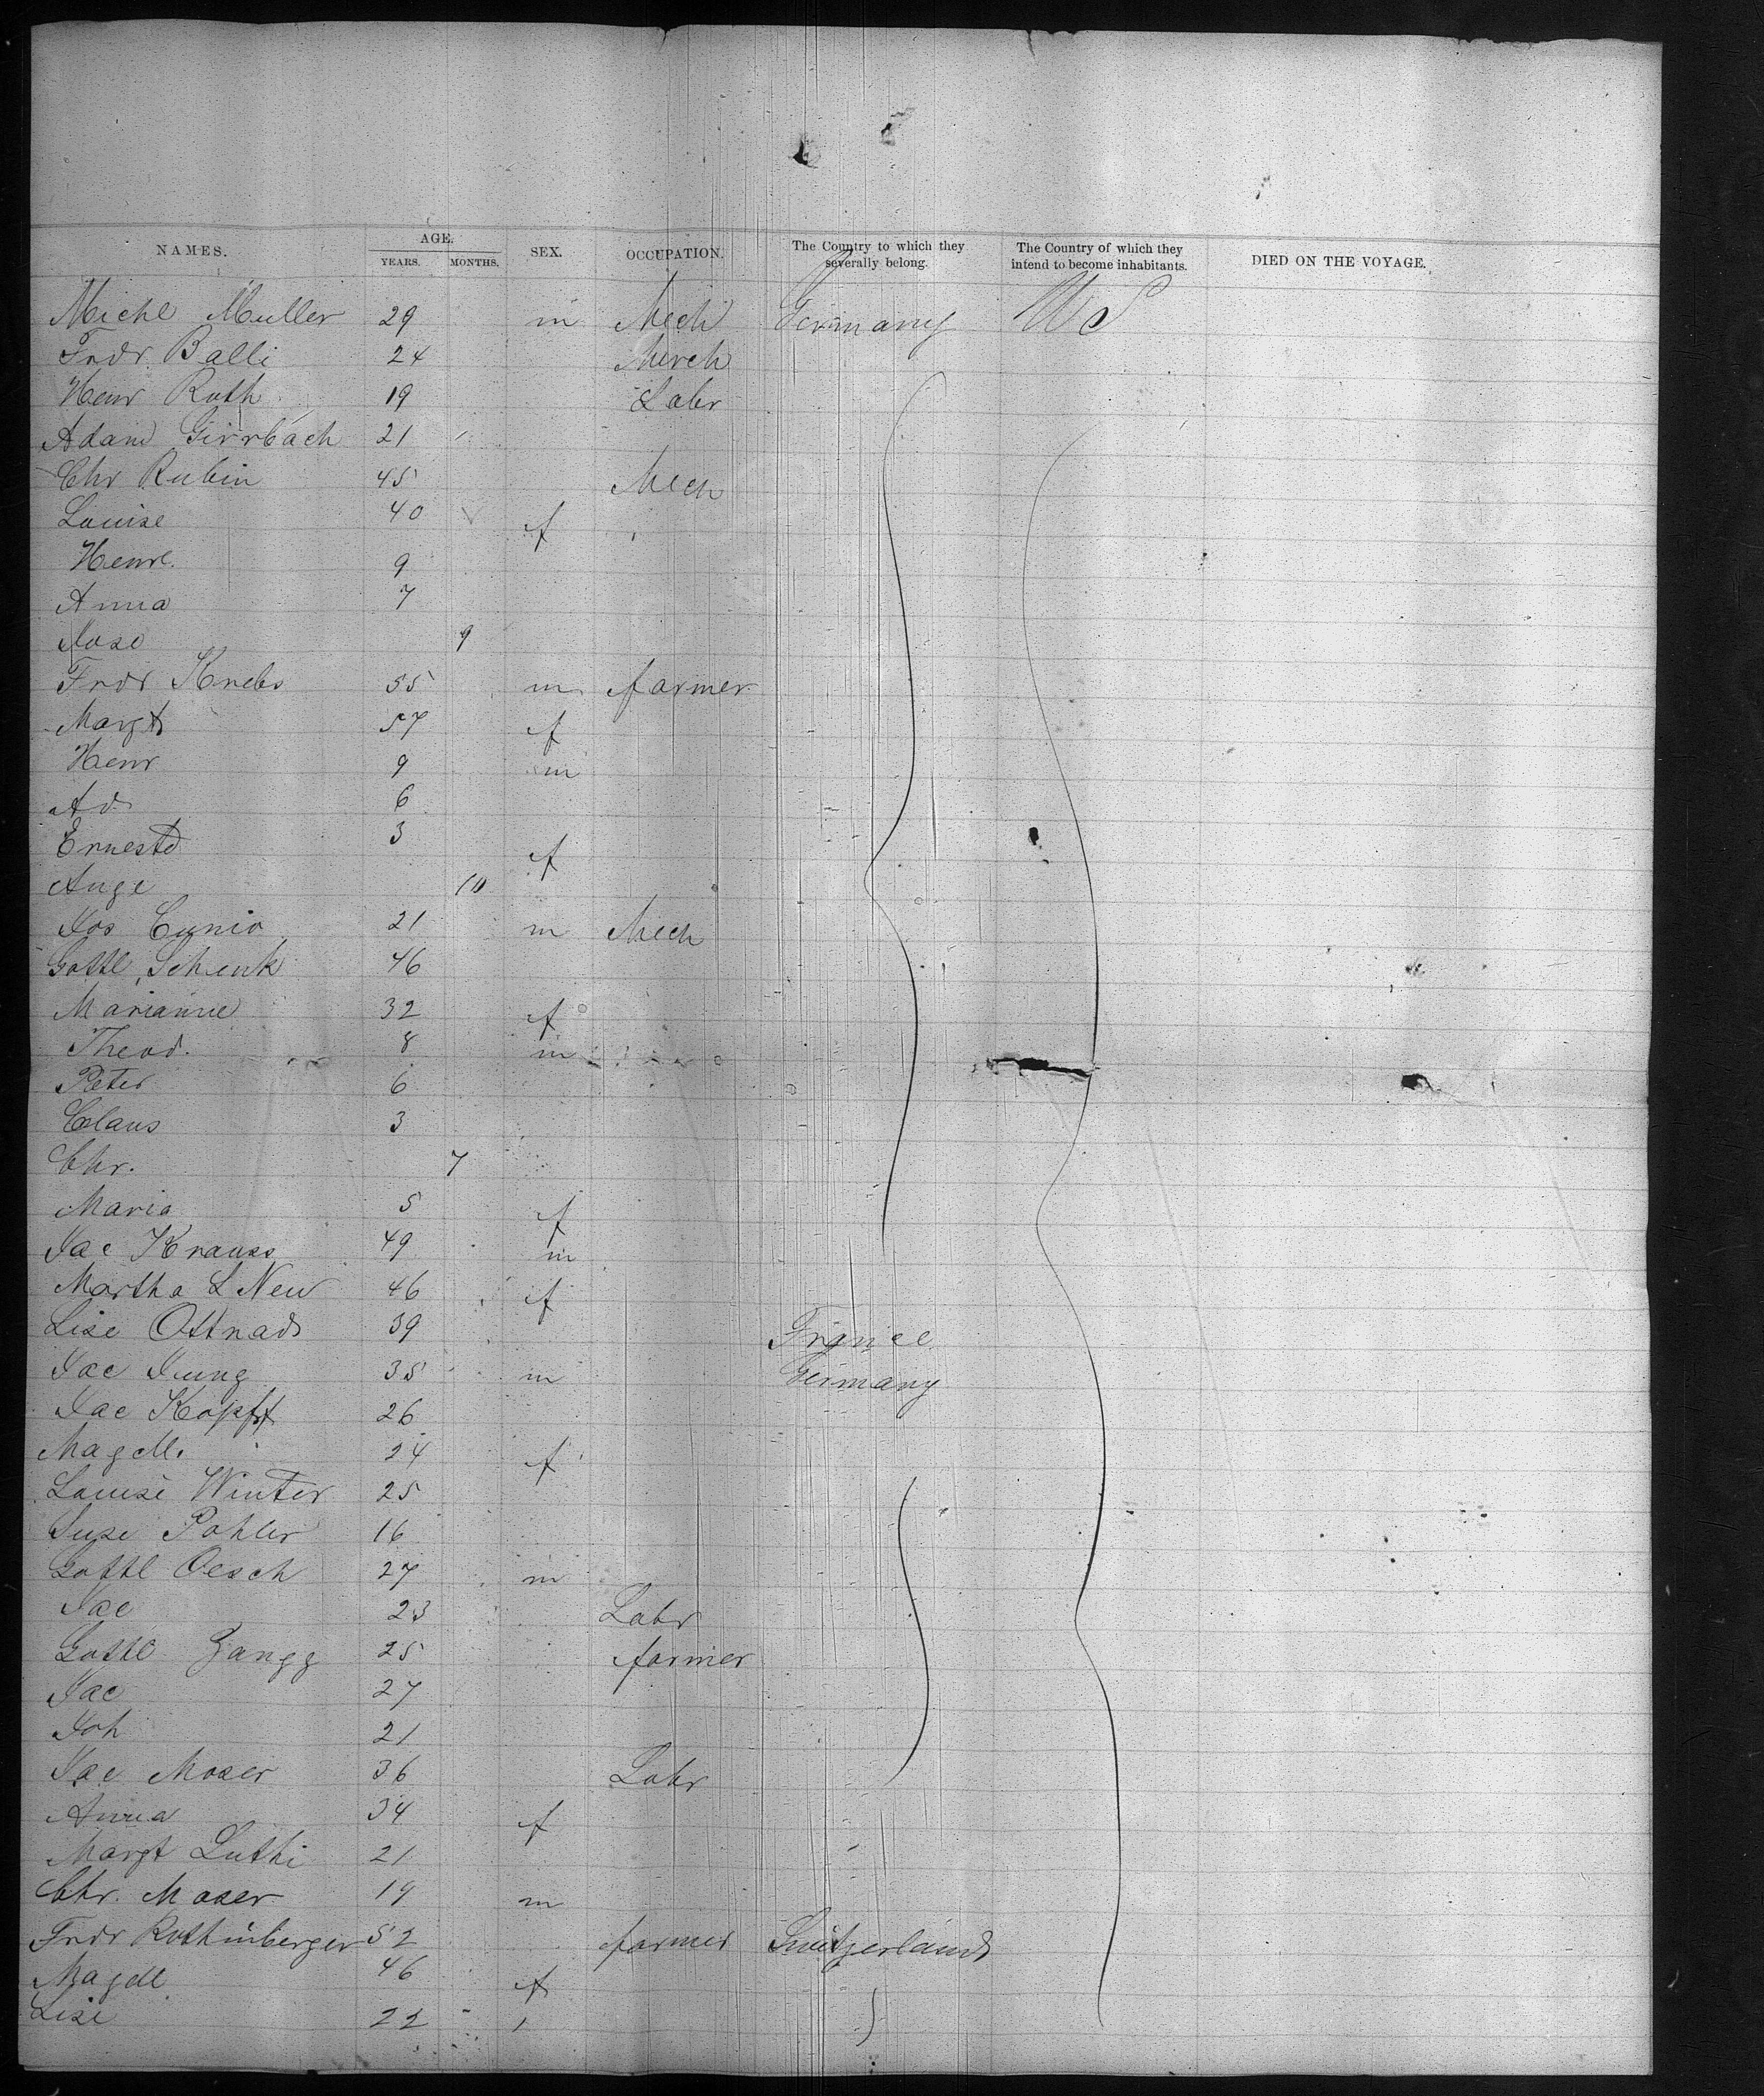 NAMES. AGE. YEARS. MONTHS. SEX. OCCUPATION. The Country to which they severally belong. The Country of which they intend to become inhabitants. DIED ON THE VOYAGE.
Michl Muller 29 m Mech Germany US
Fredr Balli 24 Merch
Henr Roth 19 Labr
Adam Girrbach 21
Chr Rubin 45 Mech
Louise 40 f
Henre. 9
Anna 7
Rose 9
Fredr Krebs 55 m farmer
Margt 57 f
Henr 9 m
Ad 6
Ernest 3
Auge 10 f
Jos Cunio 21 m Mech
Gottl Schenk 46
Marianne 32 f
Theod. 8 m
Peter 6
Claus 3
Chr. 7
Maria 5 f
Jac Krauss 49 m
Martha L New 46 f
Lise Ottnad 39 France
Jac Jung 35 m Germany
Jac Kopff 26
Magdl. 24 f
Louise Winter 25
Suse Pohler 16
Gottl Oesch 27 m
Jac 23 Labr
Gottl Zangg 25 farmer
Jac 27
Joh 21
Jac Moser 36 Labr
Anna 34 f
Margt Luthi 21
Chr. Moser 19 m
Fredr Rothinberger 52 farmer Switzerland
Magdl 46 f
Lise 22